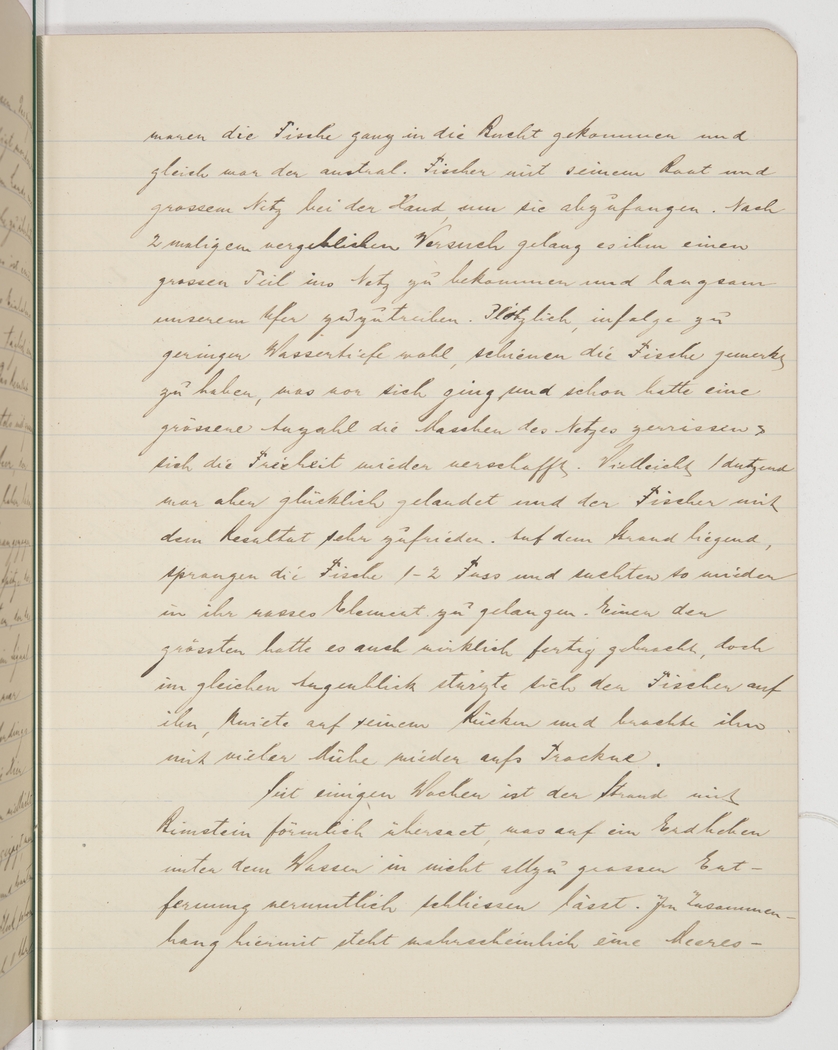 waren die Fische ganz in die Bucht gekommen und
gleich war der austral. Fischer mit seinem Boot und
grossem Netz bei der Hand, um sie abzufangen. Nach
2 maligem vergeblichen Versuch gelang es ihm einen
grossen Teil ins Netz zu bekommen und langsam
unserem Ufer zuzutreiben. Plötzlich, infolge zu
geringer Wassertiefe wohl, schienen die Fische gemerkt
zu haben, was vor sich ging und schon hatte eine
grössere Anzahl die Maschen des Netzes zerrissen &
sich die Freiheit wieder verschafft. Vielleicht 1 dutzend
war aber glücklich gelandet und der Fischer mit
dem Resultat sehr zufrieden. Auf dem Strand liegend,
sprangen die Fische 1-2 Fuss und suchten so wieder
in ihr nasses Element zu gelangen. Einer der
grössten hatte es auch wirklich fertig gebracht, doch
im gleichen Augenblick stürzte sich der Fischer auf
ihn, kniete auf seinem Rücken und brachte ihn
mit vieler Mühe wieder aufs Trockne.
Seit einigen Wochen ist der Strand mit
Bimstein förmlich übersaet, was auf ein Erdbeben
unter dem Wasser in nicht allzu grosser Ent-
fernung vermutlich schliessen lässt. Im Zusammen-
hang hiermit steht wahrscheinlich eine Meeres-